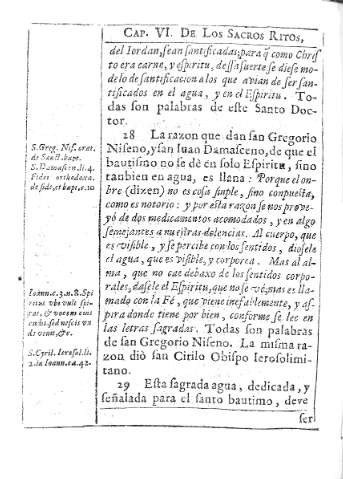 CAP. VI. DE LOS SACROS RITOS,
del Iordan, sean santificadas; para q̃ como Chris
to era carne, y espiritu, dessa suerte se diese mo-
delo de santificacion a los que avian de ser san-
tificados en el agua, y en el Espiritu. To
das son palabras de este Santo Doc-
tor.
28 La razon que dan san Gregorio
Niseno, y san Iuan Damasceno, de que el
bautismo no se dè en solo Espiritu, sino
tanbien en agua, es llana: Porque el on-
bre (dizen) no es cosa sinple, sino conpuesta,
como es notorio: y por esta razon se nos prove-
yó de dos medicamentos acomodados, y en algo
semejantes a nuestras dolencias. Al cuerpo, que
es visible, y se percibe con los sentidos, diosele
el agua, que es visible, y corporea. Mas al al-
ma, que no cae debaxo de los sentidos corpo-
rales, dasele el Espiritu, que no se vè; mas es lla-
mado con la Fé, que viene inefablemente, y as-
pira donde tiene por bien, conforme se lee en
las letras sagradas. Todas son palabras
de san Gregorio Niseno. La misma ra-
zon diò san Cirilo Obispo Ierosolimi-
tano.
29 Esta sagrada agua, dedicada, y
señalada para el santo bautimo, deve
ser
S. Greg. Nis. orat.
de Sanct. bapt.
S. Damascen. li. 4.
Fidei orthodoxa.
de fide, et bapt. c. 10
Ioann. c. 3. n. 8. Spi
ritus ubi vult spi-
rat, & vocem eius
audis, sed nescis un
de venit, &c.
S. Cyril. Ierosol. li.
2. in Ioann. c. 42.